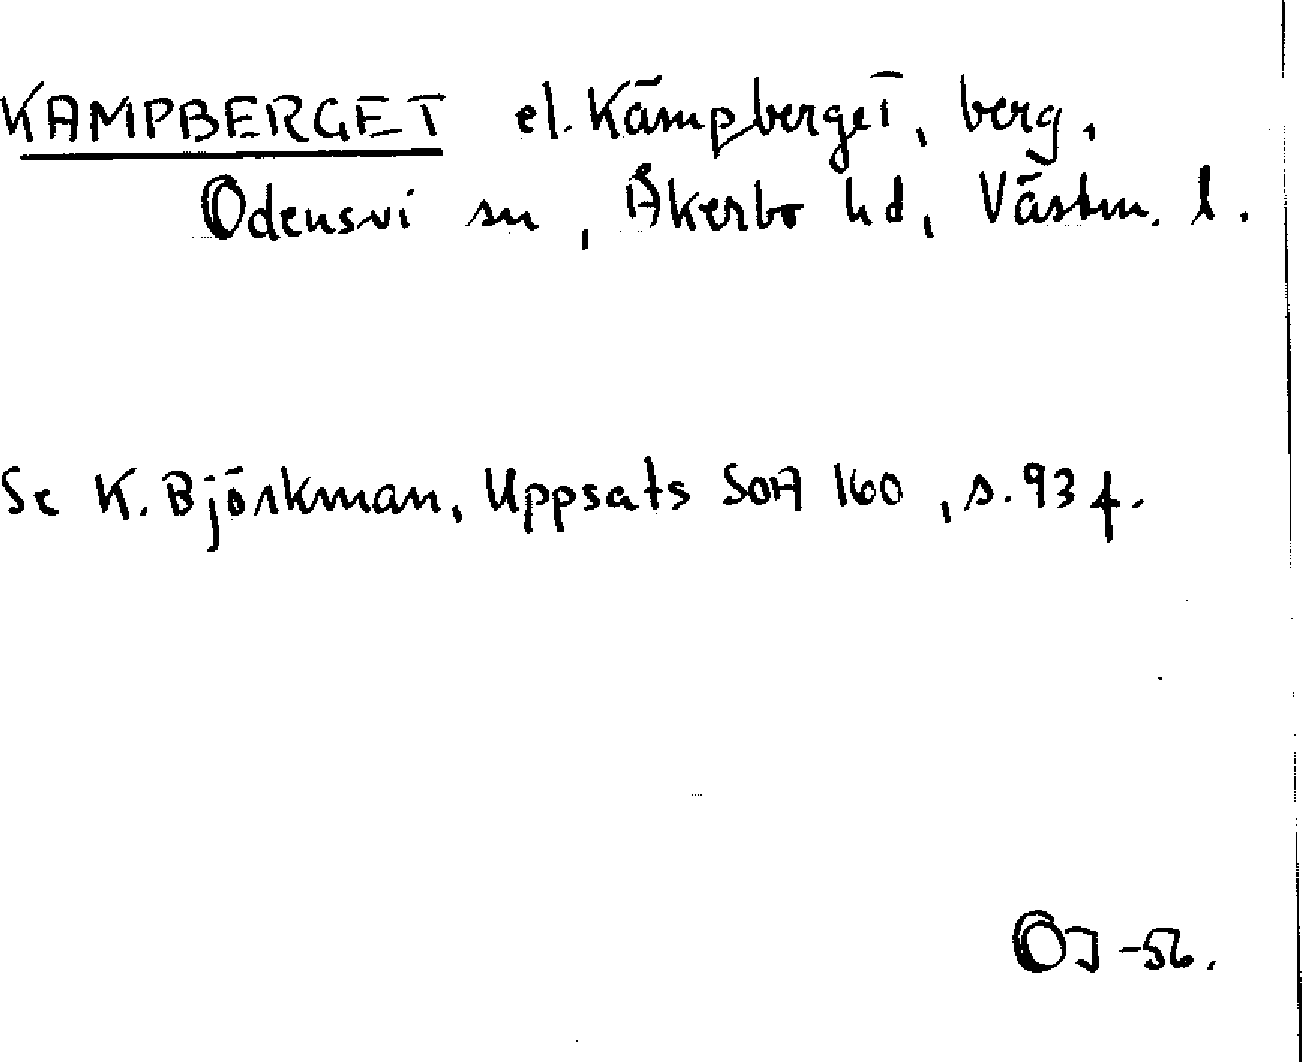 KAMPBERGET el. Kämpberget, berg,
Odensvi sn, Åkerbo hd, Västm. l.
Se K. Björkman, Uppsats SOA 160, s. 93 f.
OJ -56.